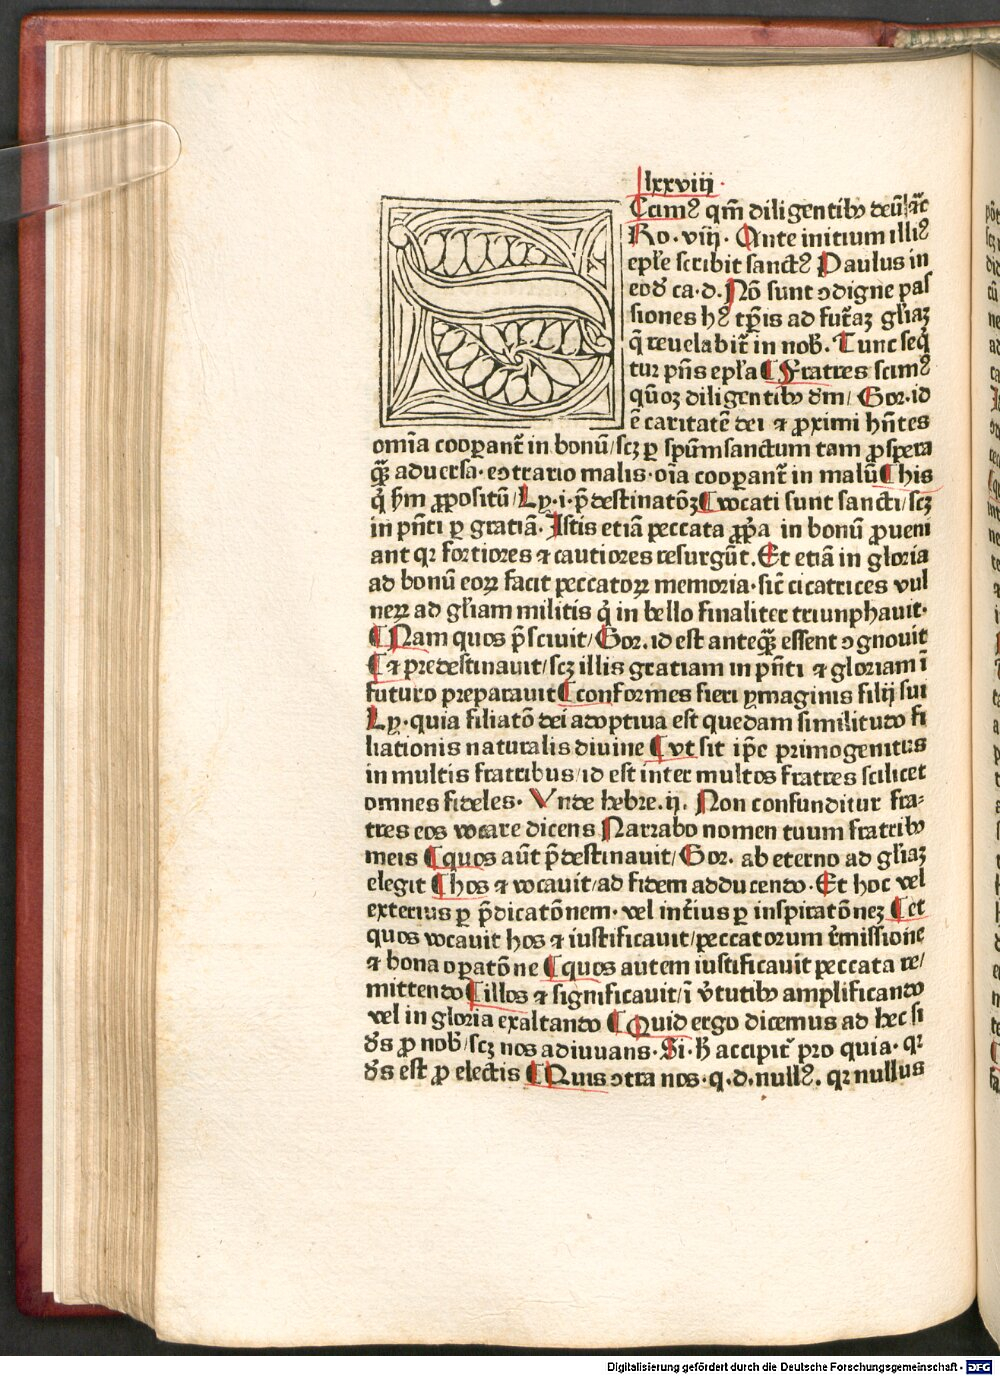 lxxviij.
Scimꝰ qm̄ diligentibꝫ deū
Ro. viij. Ante initium illiꝰ
ep̄le scribit sanctꝰ Paulus in
eod̄ ca. d. Nō sunt ↄdigne pas
siones hꝰ tp̄is ad fut̄aꝫ gl̄iaꝫ
q̄ reuelabit̄ in nob̄. Tunc seq̄
tur pn̄s ep̄la ¶ Fratres scimꝰ
quōꝫ diligentibꝫ dm̄/ Gor. id
ē caritatē dei ⁊ ꝓximi hn̄tes
om̄ia cooꝑant̄ in bonū/scꝫ ꝑ spūmsanctum tam ꝓspera
qꝫ̄ aduersa. eↄtrario malis. oīa cooꝑant̄ in malū ¶ his
q̇ hm̄ ꝓpositū/Ly. i. p̄destinatōꝫ ¶ vocati sunt sancti/scꝫ
in pn̄ti ꝑ gratiā. Istis etiā peccata ꝓp̄a in bonū ꝓueni
ant qꝛ fortiores ⁊ cautiores resurgūt. Et etiā in gloria
ad bonū eoꝝ facit peccatoꝝ memoria. sic̄ cicatrices vul
neꝝ ad gl̄iam militis q̇ in bello finaliter triunphauit.
¶ Nam quos p̄sciuit/Gor. id est anteqꝫ̄ essent ↄgnouit
¶ ⁊ predestinauit/scꝫ illis gratiam in pn̄ti ⁊ gloriam ī
futuro preparauit ¶ conformes fieri ymaginis filij sui
Ly. quia filiatō dei adoptiua est quedam similitudo fi
liationis naturalis diuine ¶ vt sit ip̄e primogenitus
in multis fratribus/id est inter multos fratres scilicet
omnes fideles. Vnde hebre. ij. Non confunditur fra⸗
tres eos vocare dicens Narrabo nomen tuum fratribꝫ
meis ¶ quos aūt p̄destinauit/Gor. ab eterno ad gl̄iaꝫ
elegit ¶ hos ⁊ vocauit/ad fidem adducendo. Et hoc vel
exterius ꝑ p̄dicatōnem. vel int̄ius ꝑ inspiratōneꝫ ¶ et
quos vocauit hos ⁊ iustificauit/peccatorum r̄missione
⁊ bona oꝑatōne ¶ quos autem iustificauit peccata re/
mittendo ¶ illos ⁊ significauit/ī v̄tutibꝫ amplificando
vel in gloria exaltando ¶ Quid ergo dicemus ad hec si
ds̄ ꝓ nob̄/scꝫ nos adiuuans. Si. hꝰ accipit̄ pro quia. qꝛ
ds̄ est ꝓ electis ¶ Quis ↄtra nos. q. d. nullꝰ. qꝛ nullus
Digitalisierung gefördert durch die Deutsche Forschungsgemeinschaft - DFG